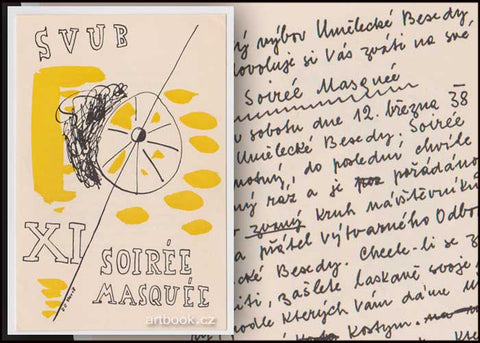 SVUB
XI SOIRÉE
MASQUÉE
artbook.cz
ný výbor Umělecké Besedy,
dovoluje si Vás zváti na své
Soireé Masqueé
v sobotu dne 12. března 38
Umělecké Besedy. Soireé
do poslední chvíle
ný raz a je pořádáno
zvaný kruh návštěvníků
a přátel výtvarného Odbo
cké Besedy. Chcete-li se z
iti, zašlete laskavě svoje
podle kterých Vám dáme
kostym.